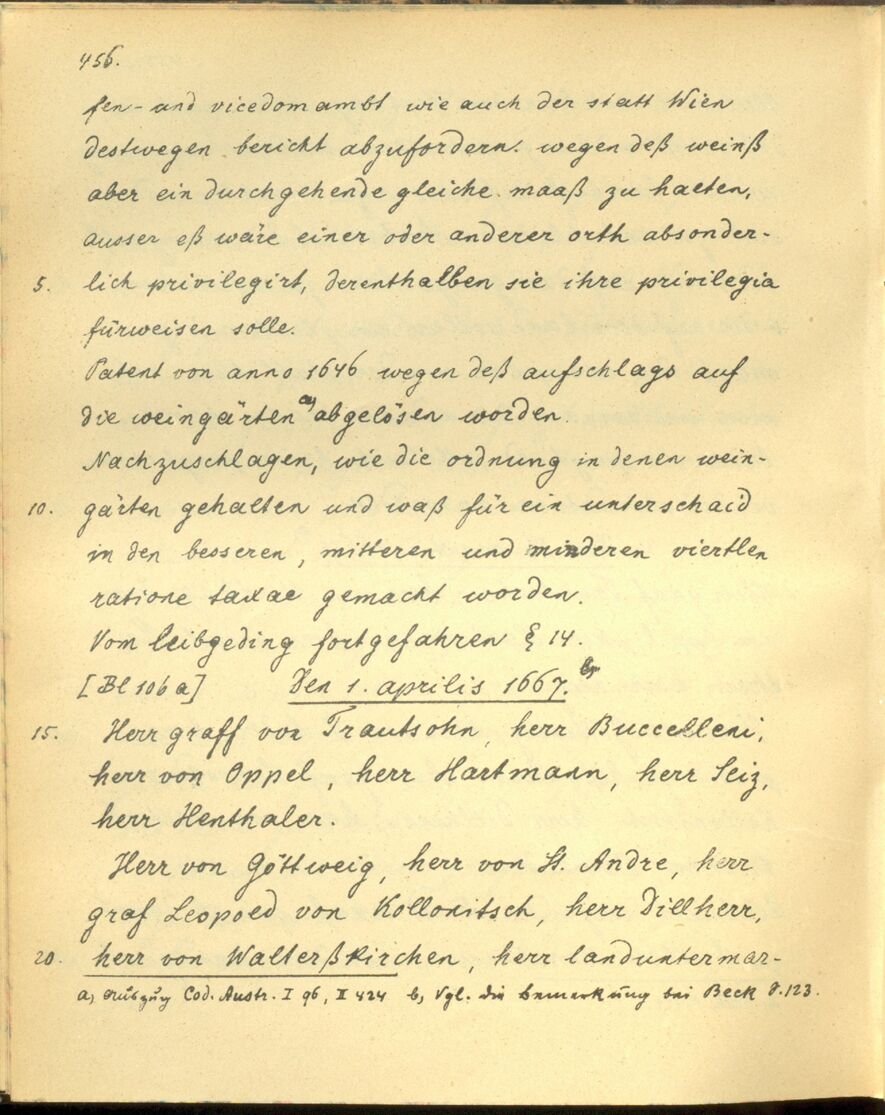 456.
fen- und vicedomambt wie auch der statt Wien
destwegen bericht abzufordern. wegen deß weinß
aber ein durchgehende gleiche maaß zu halten,
ausser eß wäre einer oder anderer orth absonder-
5. lich privilegirt, derenthalben sie ihre privilegia
fürweisen solle.
Patent von anno 1646 wegen deß aufschlags auf
die weingärten a) abgelösen worden.
Nachzuschlagen, wie die ordnung in denen wein-
10. gärten gehalten und waß für ein unterschaid
in den besseren, mitteren und minderen viertlen
ratione taxae gemacht worden.
Vom leibgeding fortgefahren § 14.
[Bl 106 a] Den 1. aprilis 1667. b)
15. Herr graff von Trautsohn, herr Buccelleni,
herr von Oppel, herr Hartmann, herr Seiz,
herr Henthaler.
Herr von Göttweig, herr von St. Andre, herr
graf Leopold von Kollonitsch, herr Dillherr,
20. herr von Walterßkirchen, herr landuntermar-
a) Auszug Cod. Austr. I 96, II 424 b) Vgl. die Bemerkung bei Beck S. 123.